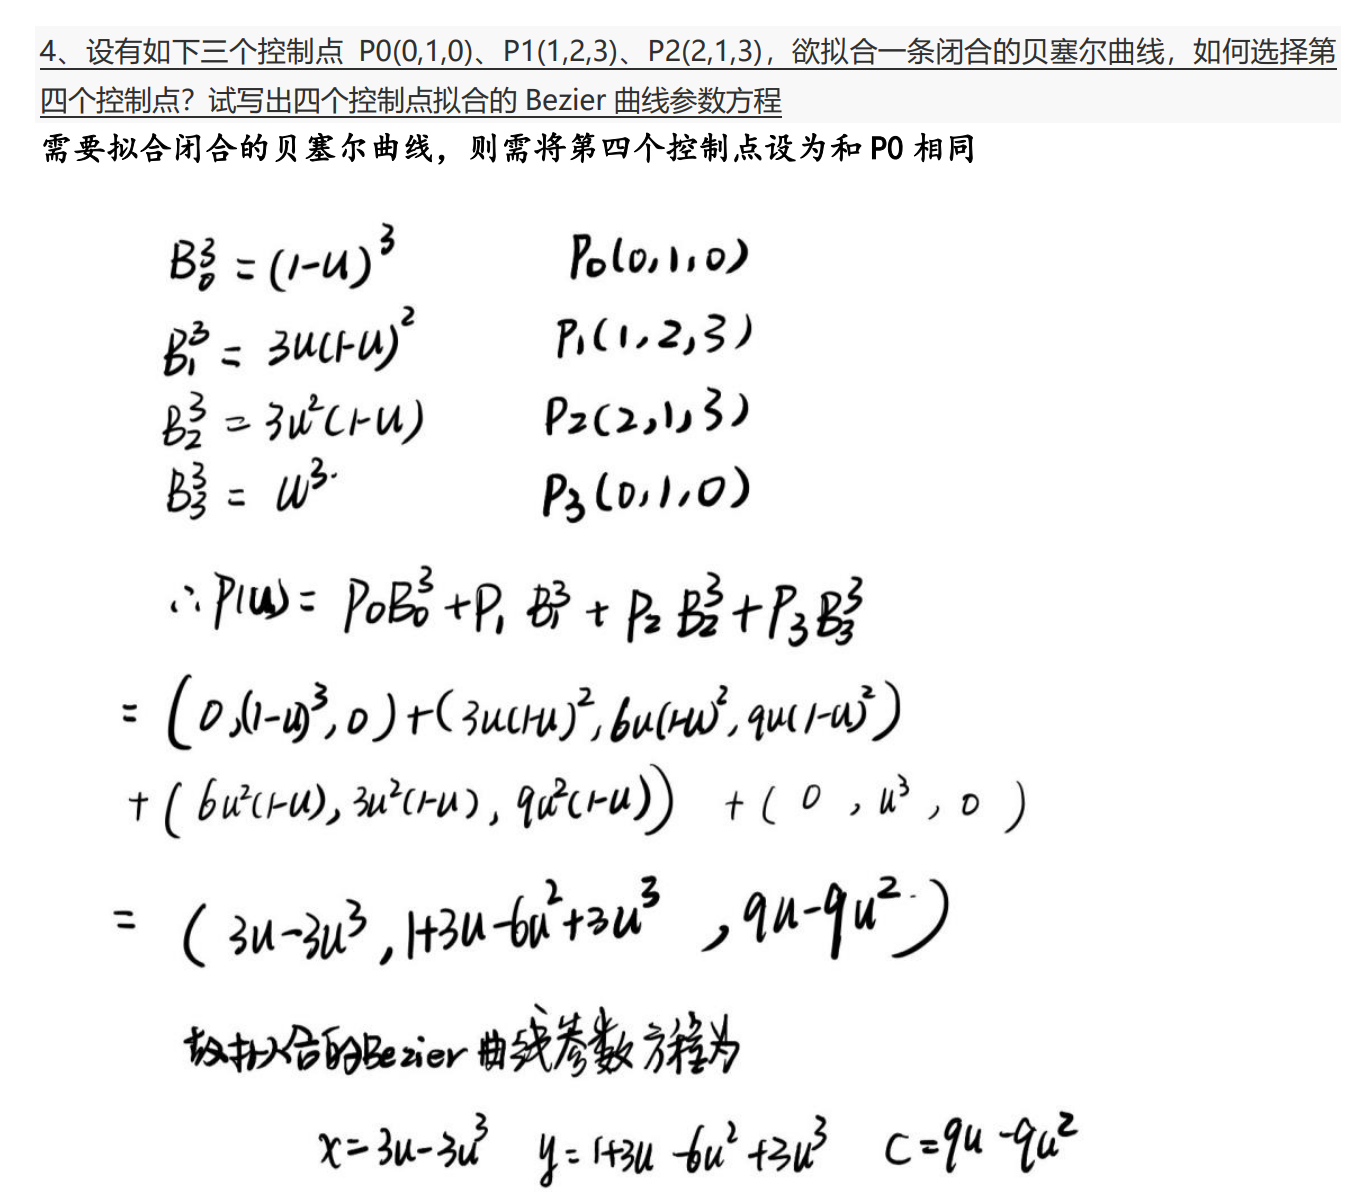 4、设有如下三个控制点 P0(0,1,0)、P1(1,2,3)、P2(2,1,3)，欲拟合一条闭合的贝塞尔曲线，如何选择第
四个控制点？试写出四个控制点拟合的 Bezier 曲线参数方程
需要拟合闭合的贝塞尔曲线，则需将第四个控制点设为和 P0 相同
B₀³ = (1-u)³ P₀(0,1,0)
B₁³ = 3u(1-u)² P₁(1,2,3)
B₂³ = 3u²(1-u) P₂(2,1,3)
B₃³ = u³ P₃(0,1,0)
∴P(u) = P₀B₀³ + P₁ B₁³ + P₂ B₂³ + P₃ B₃³
= (0,(1-u)³,0)+(3u(1-u)²,6u(1-u)²,9u(1-u)²)
+ (6u²(1-u), 3u²(1-u), 9u²(1-u)) + (0, u³, 0)
= (3u-3u³, 1+3u-6u²+3u³, 9u-9u²)
故拟合的Bezier 曲线参数方程为
x=3u-3u³ y=1+3u-6u²+3u³ C=9u-9u²